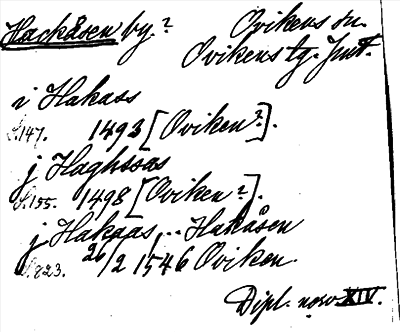 Hackåsen by? Ovikens sn.
Ovikens tg. Jmt.
i Hakass
S.147. 1493 [Oviken?].
j Haghssas
S.155. 1498 [Oviken?].
j Hakaas, .. Hakåsen
S.823. 26/2 1546 Oviken.
Dipl. norv. XIV.